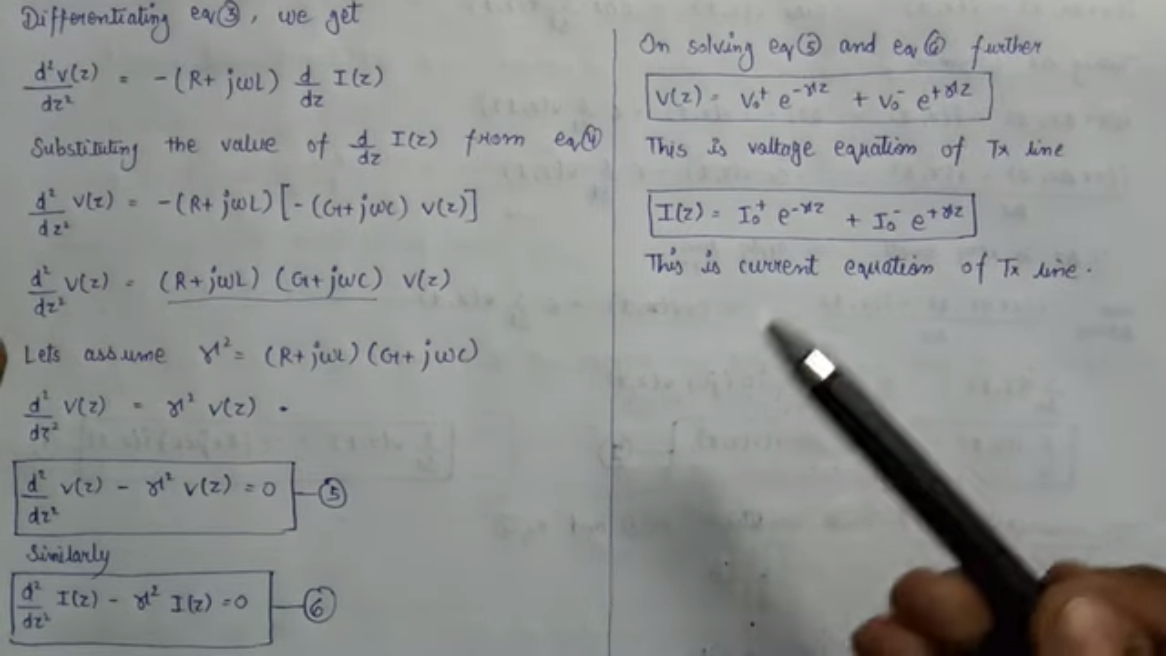 Differentiating eq③, we get
d²V(z)/dz² = -(R+jωL) d/dz I(z)
Substituting the value of d/dz I(z) from eq④
d²/dz² V(z) = -(R+jωL)[-(G+jωC) V(z)]
d²/dz² V(z) = (R+jωL) (G+jωC) V(z)
Lets assume γ² = (R+jωL)(G+jωC)
d²/dz² V(z) = γ² V(z)
d²/dz² V(z) - γ² V(z) = 0 —⑤
Similarly
d²/dz² I(z) - γ² I(z) = 0 —⑥
On solving eq⑤ and eq⑥ further
V(z) = V₀⁺ e^{-γz} + V₀⁻ e^{+γz}
This is voltage equation of Tx line
I(z) = I₀⁺ e^{-γz} + I₀⁻ e^{+γz}
This is current equation of Tx line.